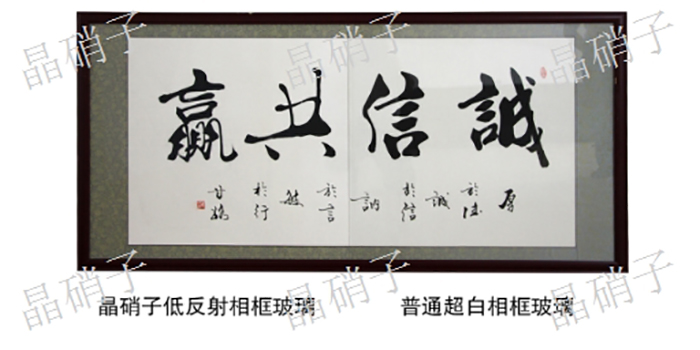 晶硝子
晶硝子
晶硝子
誠信共贏
厚
於德
誠
於信
訥
於言
敏
於行
晶硝子低反射相框玻璃
普通超白相框玻璃
晶硝子
晶硝子
晶硝子